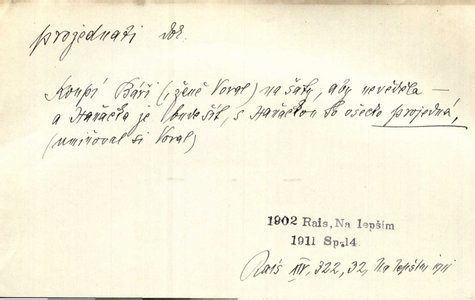 projednati dok.
Koupí Báři (, ženě Voral) na šaty, aby nevěděla —
a Haňačka je, s Haňačkou to všecko projedná,
(umiňoval si Voral)
1902 Rais, Na lepším
1911 Sp.14
Rais XIV, 322, 32, Na lepším 1911